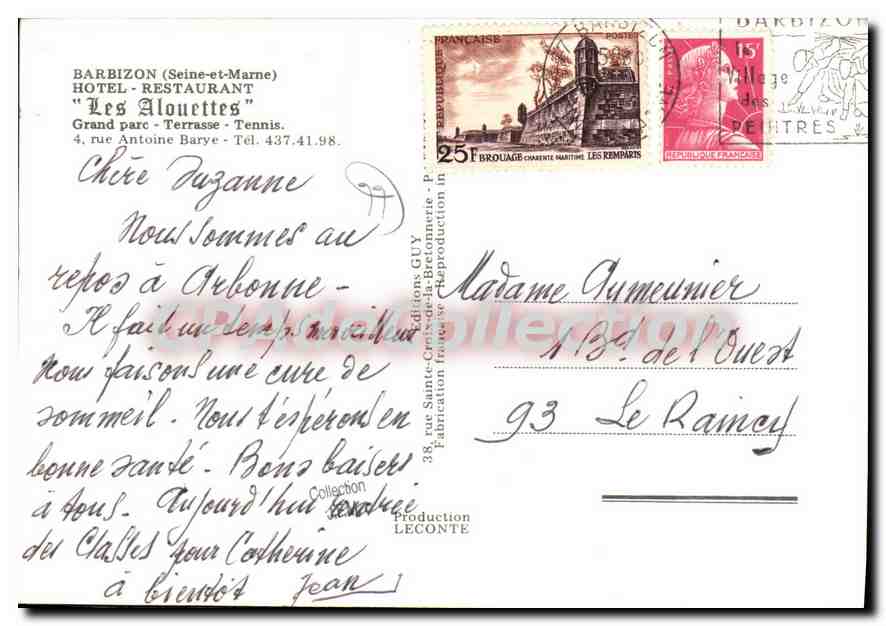 BARBIZON (Seine-et-Marne)
HOTEL - RESTAURANT
"Les Alouettes"
Grand parc - Terrasse - Tennis.
4, rue Antoine Barye - Tél. 437.41.98.
Chère Suzanne
Nous sommes au
repos à Arbonne -
Il fait un temps merveilleux
Nous faisons une cure de
sommeil. Nous t'espérons en
bonne santé. Bons baisers
à tous. Aujourd'hui rentrée
des Classes pour Catherine
à bientôt Jean
Collection
Editions GUY
38, rue Sainte-Croix-de-la-Bretonnerie - P
Fabrication française - Reproduction in
Production
LECONTE
RÉPUBLIQUE FRANÇAISE
POSTES
25F BROUAGE CHARENTE MARITIME LES REMPARTS
15F
REPUBLIQUE FRANÇAISE
BARBIZON
le
Village
des
PEINTRES
Madame Aymeunier
1 Bd de l'Ouest
93 Le Raincy
CPA de Collection